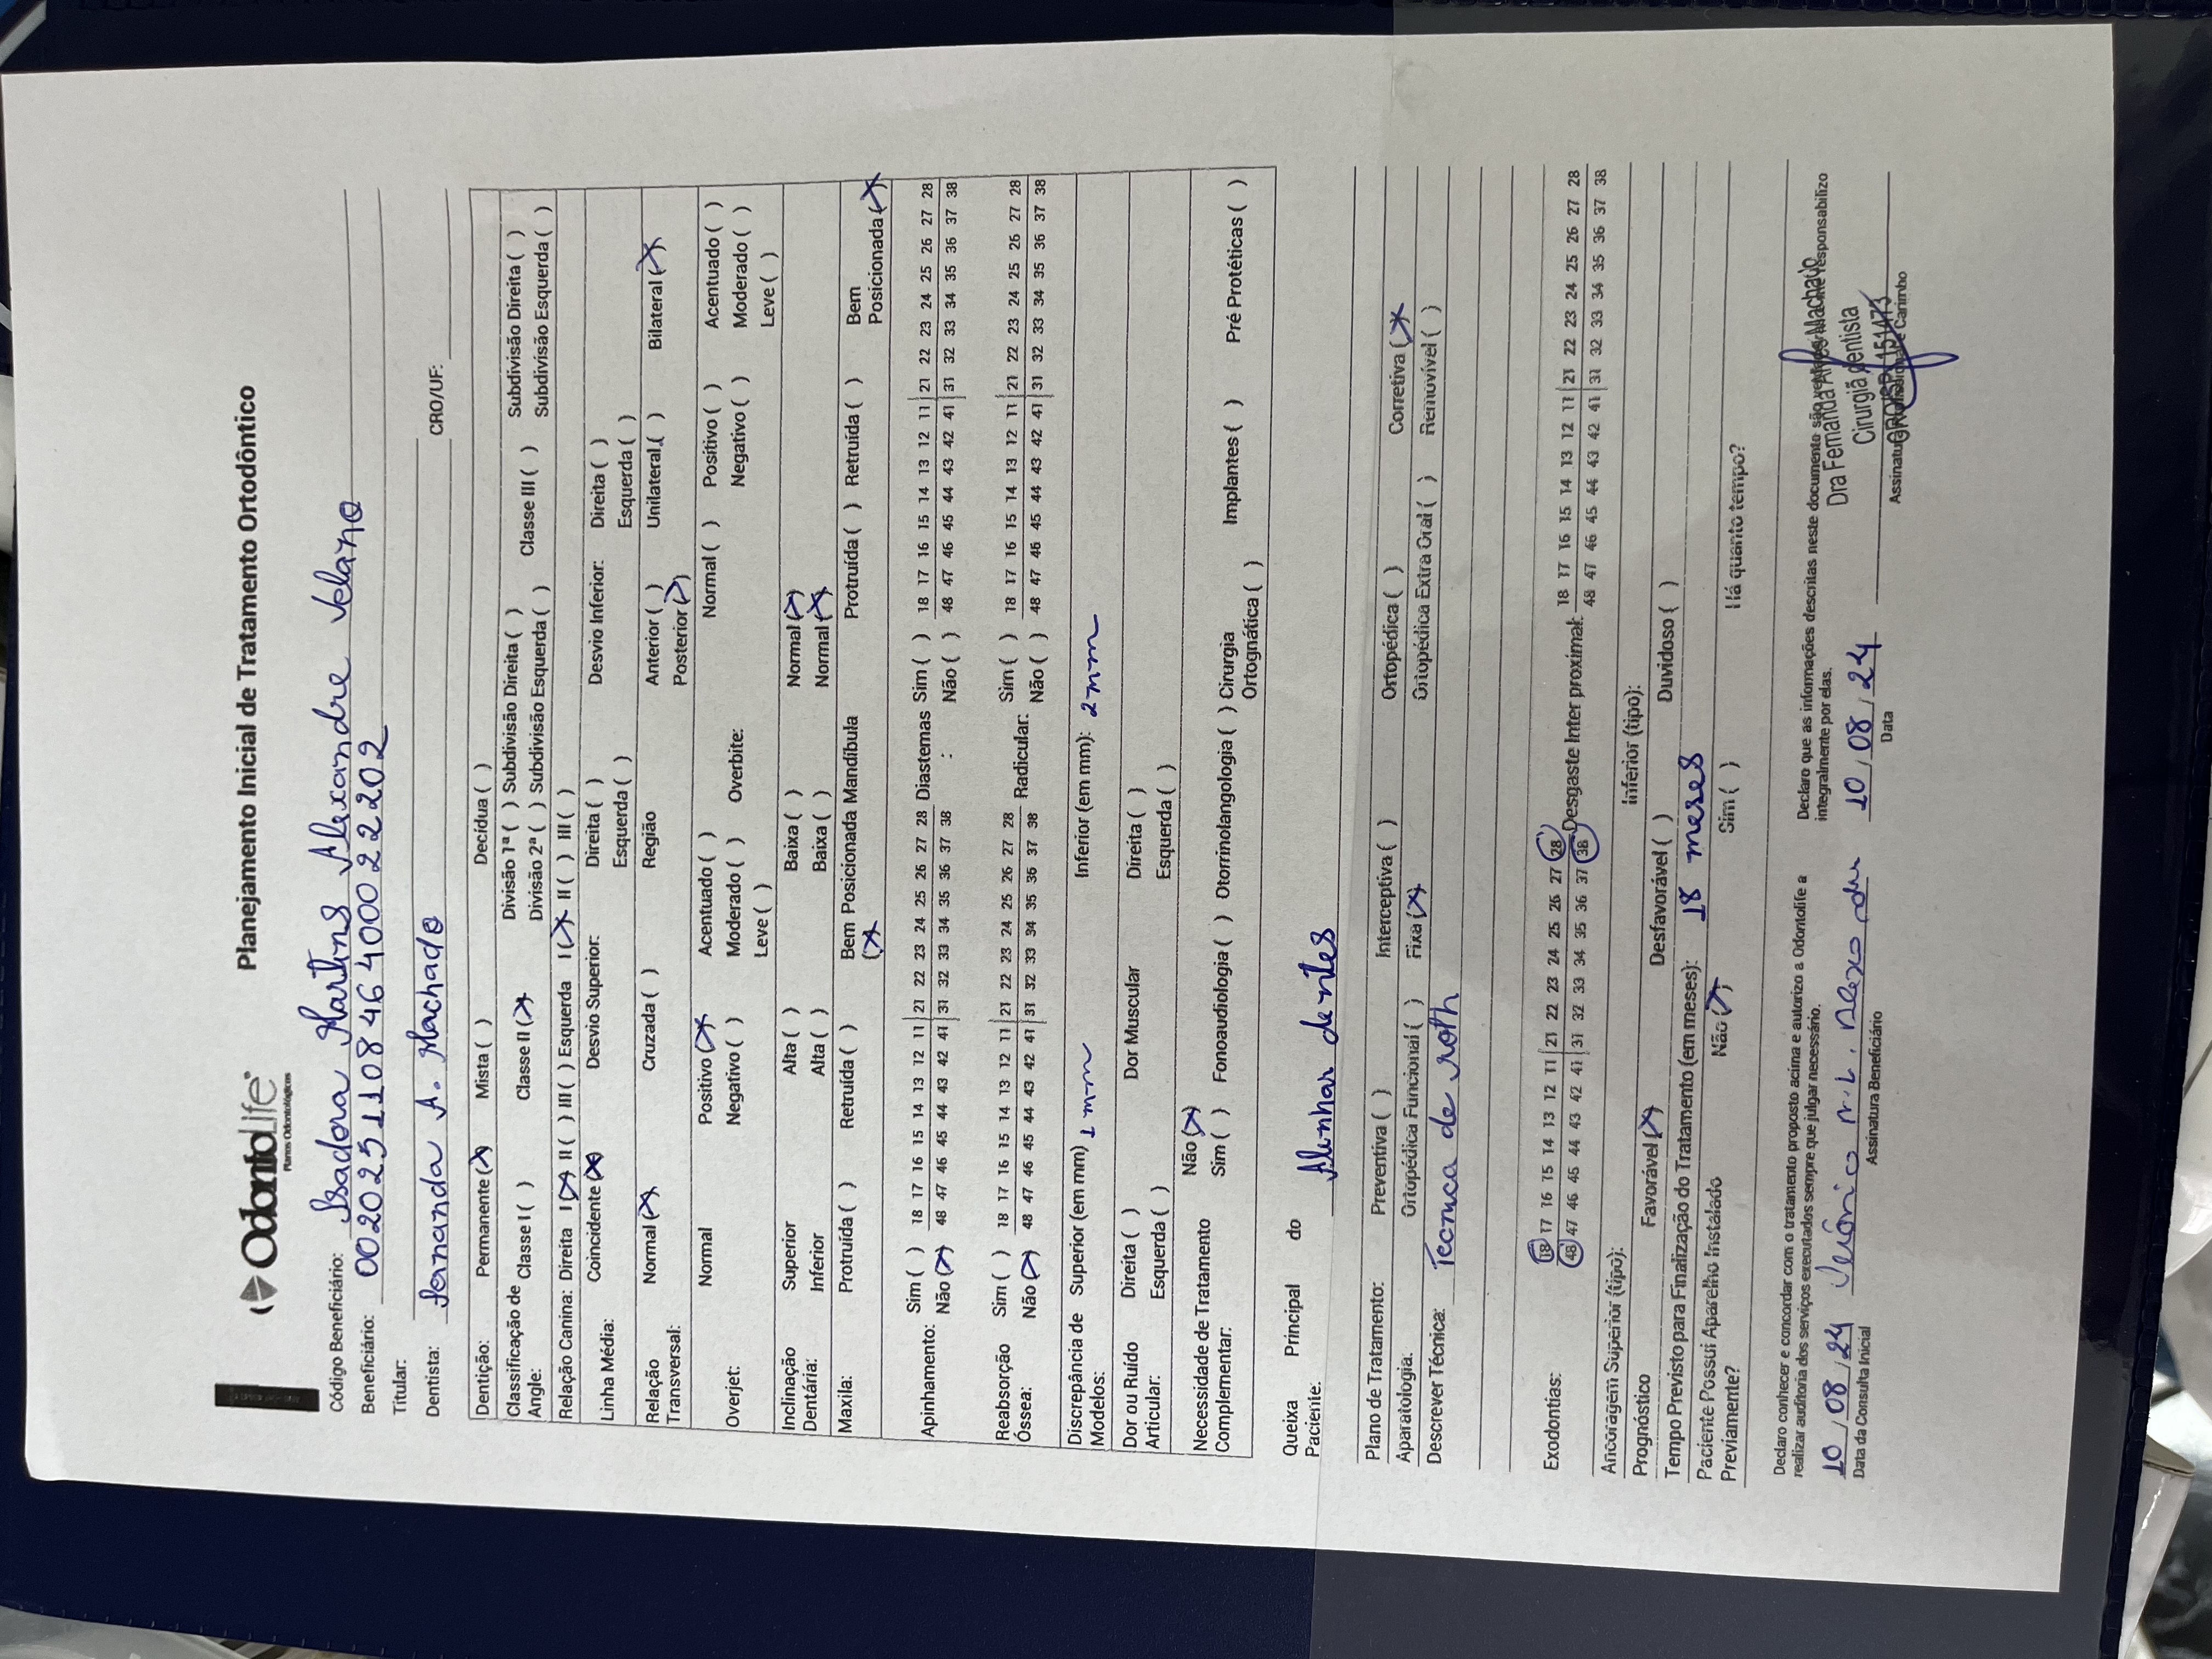 OdontoLife
Planos Odontológicos
Planejamento Inicial de Tratamento Ortodôntico
Código Beneficiário: Isadora Martins Alexandre Velano
Beneficiário: 00202511084640002 2202
Titular:
Dentista: Fernanda A. Machado CRO/UF:
Dentição: Permanente (X) Mista ( ) Decídua ( )
Classificação de Angle: Classe I ( ) Classe II (X) Divisão 1ª ( ) Subdivisão Direita ( ) Classe III ( ) Subdivisão Direita ( )
Divisão 2ª ( ) Subdivisão Esquerda ( ) Subdivisão Esquerda ( )
Relação Canina: Direita I (X) II ( ) III ( ) Esquerda I (X) II ( ) III ( )
Linha Média: Coincidente (X) Desvio Superior: Direita ( ) Desvio Inferior: Direita ( )
Esquerda ( ) Esquerda ( )
Relação Transversal: Normal (X) Cruzada ( ) Região Anterior ( ) Unilateral ( ) Bilateral (X)
Posterior (X)
Overjet: Normal Positivo (X) Acentuado ( ) Overbite: Normal ( ) Positivo ( ) Acentuado ( )
Negativo ( ) Moderado ( ) Negativo ( ) Moderado ( )
Leve ( ) Leve ( )
Inclinação Dentária: Superior Alta ( ) Baixa ( ) Normal (X)
Inferior Alta ( ) Baixa ( ) Normal (X)
Maxila: Protruída ( ) Retruída ( ) Bem Posicionada (X) Mandíbula Protruída ( ) Retruída ( ) Bem Posicionada (X)
Apinhamento: Sim ( ) 18 17 16 15 14 13 12 11 | 21 22 23 24 25 26 27 28 Diastemas Sim ( ) 18 17 16 15 14 13 12 11 | 21 22 23 24 25 26 27 28
Não (X) 48 47 46 45 44 43 42 41 | 31 32 33 34 35 36 37 38 : Não ( ) 48 47 46 45 44 43 42 41 | 31 32 33 34 35 36 37 38
Reabsorção Óssea: Sim ( ) 18 17 16 15 14 13 12 11 | 21 22 23 24 25 26 27 28 Radicular: Sim ( ) 18 17 16 15 14 13 12 11 | 21 22 23 24 25 26 27 28
Não (X) 48 47 46 45 44 43 42 41 | 31 32 33 34 35 36 37 38 Não ( ) 48 47 46 45 44 43 42 41 | 31 32 33 34 35 36 37 38
Discrepância de Modelos: Superior (em mm) 1 mm Inferior (em mm): 2 mm
Dor ou Ruído Articular: Direita ( ) Dor Muscular Direita ( )
Esquerda ( ) Esquerda ( )
Necessidade de Tratamento Complementar: Não (X)
Sim ( ) Fonoaudiologia ( ) Otorrinolangologia ( ) Cirurgia Ortognática ( ) Implantes ( ) Pré Protéticas ( )
Queixa Principal do Paciente: Alinhar dentes
Plano de Tratamento: Preventiva ( ) Interceptiva ( ) Ortopédica ( ) Corretiva (X)
Aparatologia: Ortopédica Funcional ( ) Fixa (X) Ortopédica Extra Oral ( ) Removível ( )
Descrever Técnica: Tecnica de roth
Exodontias: 18 17 16 15 14 13 12 11 | 21 22 23 24 25 26 27 28 Desgaste Inter proximal: 18 17 16 15 14 13 12 11 | 21 22 23 24 25 26 27 28
48 47 46 45 44 43 42 41 | 31 32 33 34 35 36 37 38 48 47 46 45 44 43 42 41 | 31 32 33 34 35 36 37 38
Ancoragem Superior (tipo): Inferior (tipo):
Prognóstico Favorável (X) Desfavorável ( ) Duvidoso ( )
Tempo Previsto para Finalização do Tratamento (em meses): 18 meses
Paciente Possui Aparelho Instalado Previamente? Não (X) Sim ( ) Há quanto tempo?
Declaro conhecer e concordar com o tratamento proposto acima e autorizo a Odontolife a
realizar auditoria dos serviços executados sempre que julgar necessário.
Declaro que as informações descritas neste documento são responsabilizo
integralmente por elas.
10/08/24
Data da Consulta Inicial
Assinatura Beneficiário
10/08/24
Data
Dra Fernanda Alves Machado
Cirurgiã dentista
CRO/SP 151473
Assinatura Carimbo